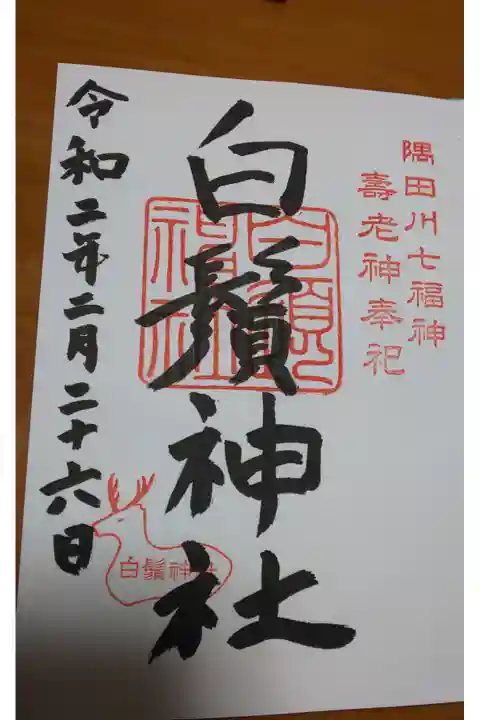 隅田川七福神
壽老神奉祀
白鬚神社
令和二年二月二十六日
白鬚神社